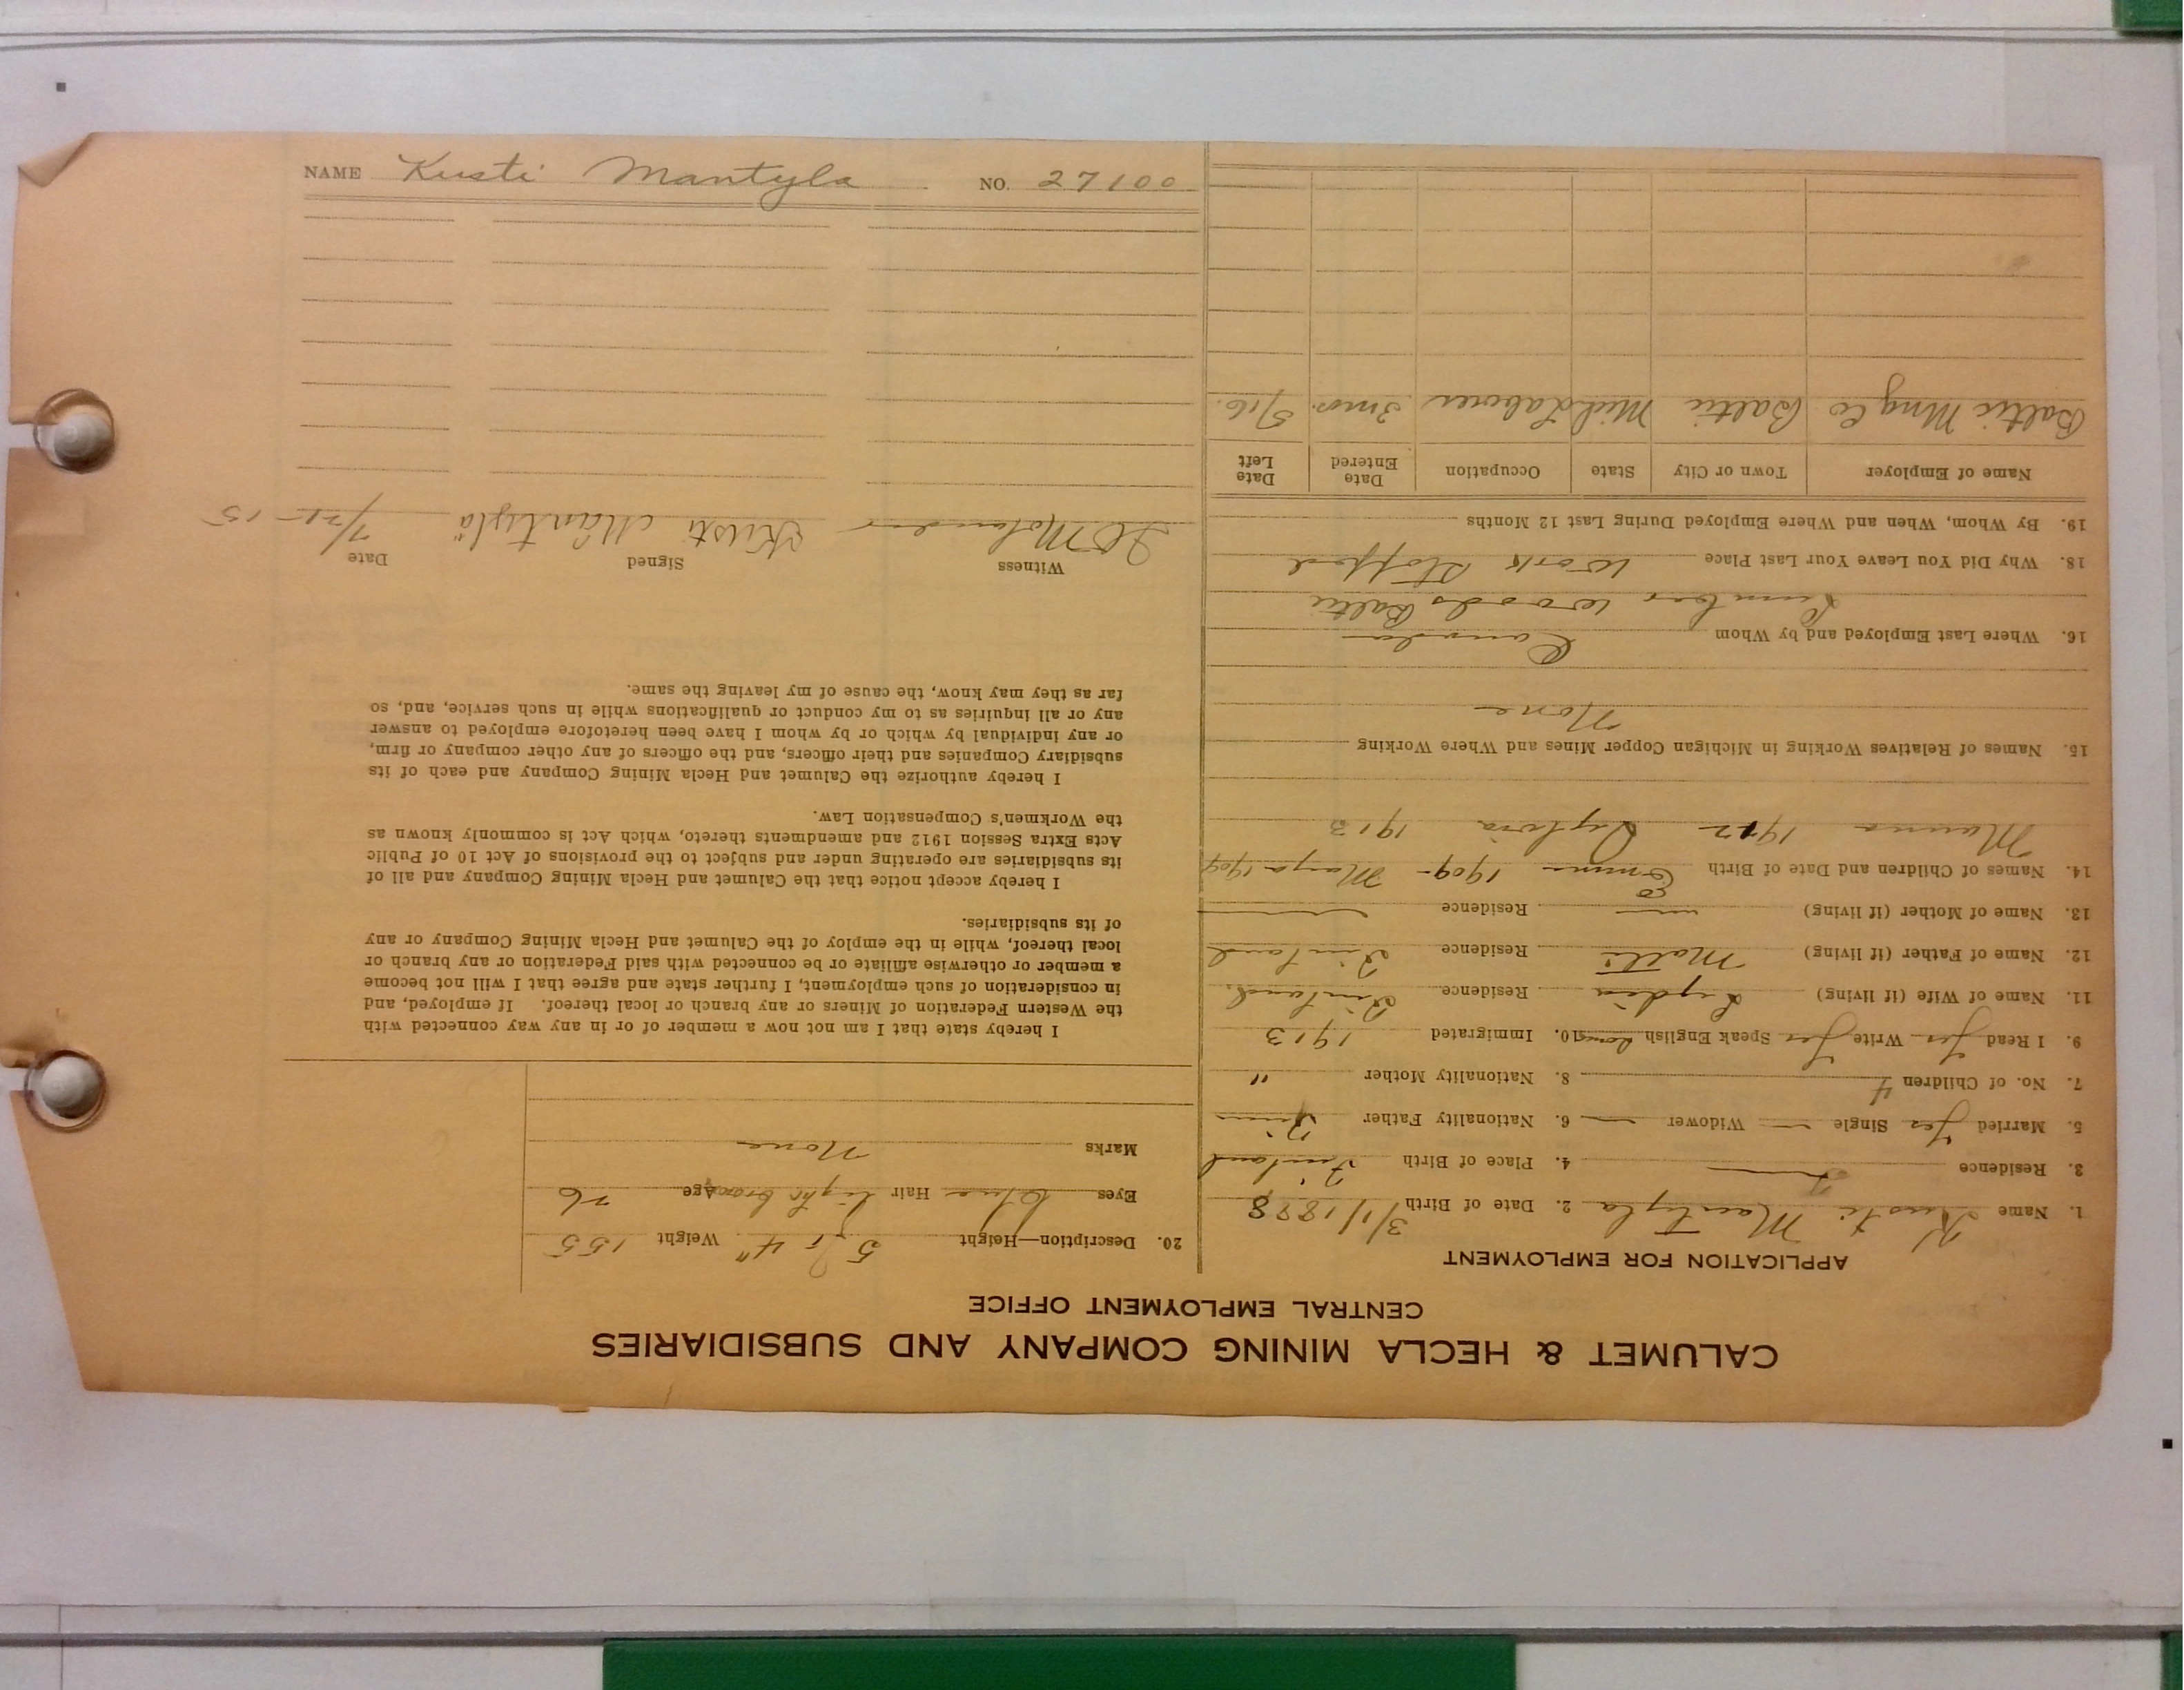 CALUMET & HECLA MINING COMPANY AND SUBSIDIARIES
CENTRAL EMPLOYMENT OFFICE
APPLICATION FOR EMPLOYMENT
1. Name Kusti Mantyla 2. Date of Birth 3/1/1888
3. Residence 4. Place of Birth Finland
5. Married Yes Single — Widower — 6. Nationality Father Finn
7. No. of Children 4 8. Nationality Mother "
9. I Read Yes Write Yes Speak English some 10. Immigrated 1913
11. Name of Wife (if living) Lydia Residence Finland
12. Name of Father (if living) Matti Residence Finland
13. Name of Mother (if living) — Residence —
14. Names of Children and Date of Birth 1909- Marya 1909
1912 Sylvia 1913
15. Names of Relatives Working in Michigan Copper Mines and Where Working
None
16. Where Last Employed and by Whom Canada
Lumber woods Baltic
18. Why Did You Leave Your Last Place Work stopped
19. By Whom, When and Where Employed During Last 12 Months
Name of Employer Town or City State Occupation Date Entered Date Left
Baltic Mng Co Baltic Mich Laborer 3 mos. 5/16.
20. Description—Height 5 ft 4" Weight 155
Eyes blue Hair light brown Age 26
Marks None
I hereby state that I am not now a member of or in any way connected with
the Western Federation of Miners or any branch or local thereof. If employed, and
in consideration of such employment, I further state and agree that I will not become
a member or otherwise affiliate or be connected with said Federation or any branch or
local thereof, while in the employ of the Calumet and Hecla Mining Company or any
of its subsidiaries.
I hereby accept notice that the Calumet and Hecla Mining Company and all of
its subsidiaries are operating under and subject to the provisions of Act 10 of Public
Acts Extra Session 1912 and amendments thereto, which Act is commonly known as
the Workmen's Compensation Law.
I hereby authorize the Calumet and Hecla Mining Company and each of its
subsidiary Companies and their officers, and the officers of any other company or firm,
or any individual by which or by whom I have been heretofore employed to answer
any or all inquiries as to my conduct or qualifications while in such service, and, so
far as they may know, the cause of my leaving the same.
Witness Signed Date
Molander Kusti Mäntylä 7/21-15
NAME Kusti Mantyla NO. 27100